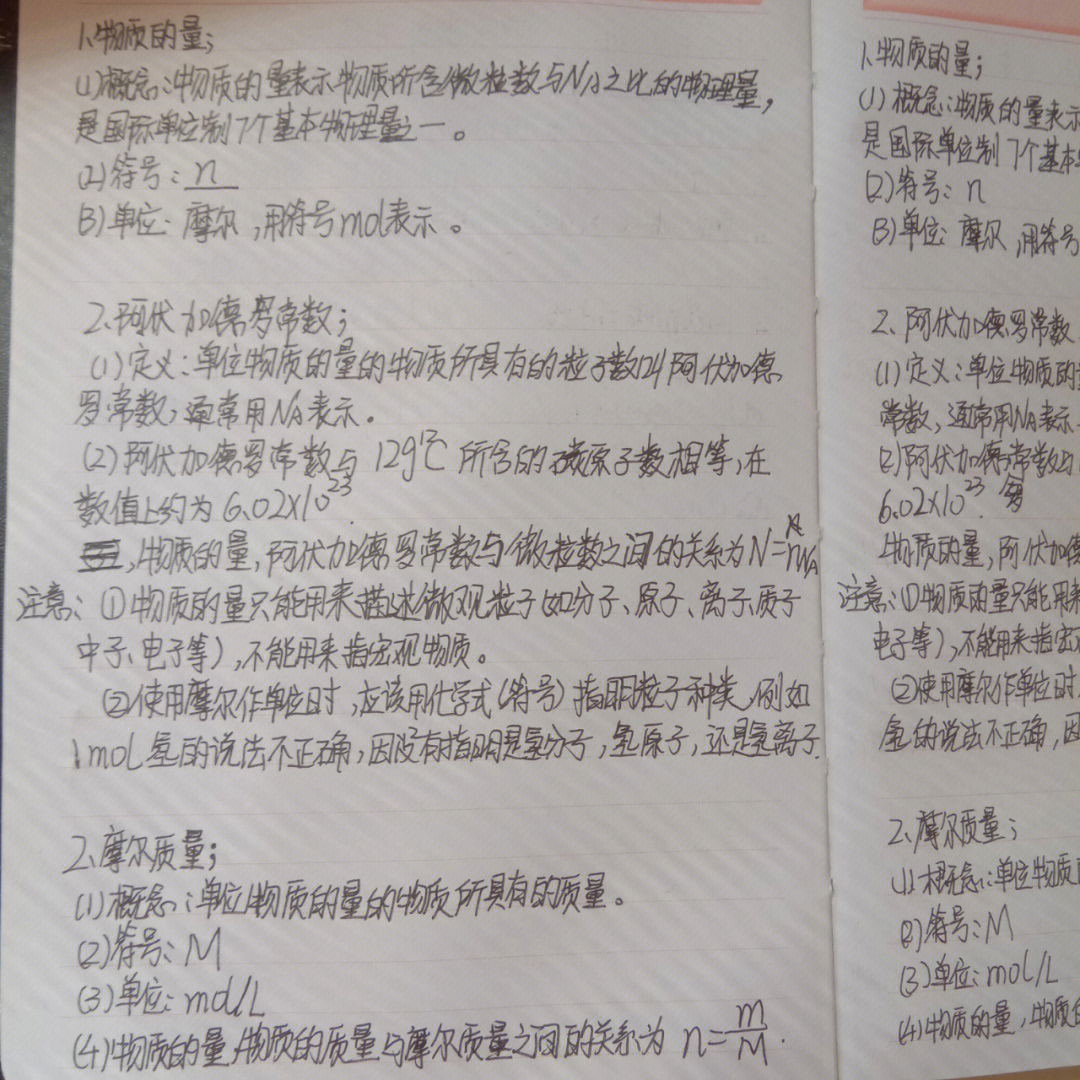 1、物质的量；
(1)概念：物质的量表示物质所含微粒数与NA之比的物理量，
是国际单位制7个基本物理量之一。
(2)符号：n
(3)单位：摩尔，用符号mol表示。
2、阿伏加德罗常数；
(1)定义：单位物质的量的物质所具有的粒子数叫阿伏加德
罗常数，通常用NA表示。
(2)阿伏加德罗常数与12g¹²C所含的碳原子数相等，在
数值上约为6.02×10²³.
，物质的量，阿伏加德罗常数与微粒数之间的关系为N=nNA
注意：①物质的量只能用来描述微观粒子（如分子、原子、离子、质子
中子、电子等），不能用来指宏观物质。
②使用摩尔作单位时，应该用化学式（符号）指明粒子种类，例如
1mol氢的说法不正确，因没有指明是氢分子，氢原子，还是氢离子.
2、摩尔质量；
(1)概念：单位物质的量的物质所具有的质量。
(2)符号：M
(3)单位：mol/L
(4)物质的量，物质的质量与摩尔质量之间的关系为 n=m/M.
1、物质的量；
(1)概念：物质的量表示
是国际单位制7个基本
(2)符号：n
(3)单位：摩尔，用符号
2、阿伏加德罗常数
(1)定义：单位物质的
常数，通常用NA表示
(2)阿伏加德常数与
6.02×10²³. 罗
物质的量，阿伏加德
注意：①物质的量只能用来
电子等），不能用来指宏观
②使用摩尔作单位时
氢的说法不正确，因
2、摩尔质量；
(1)概念：单位物质
(2)符号：M
(3)单位：mol/L
(4)物质的量，物质的